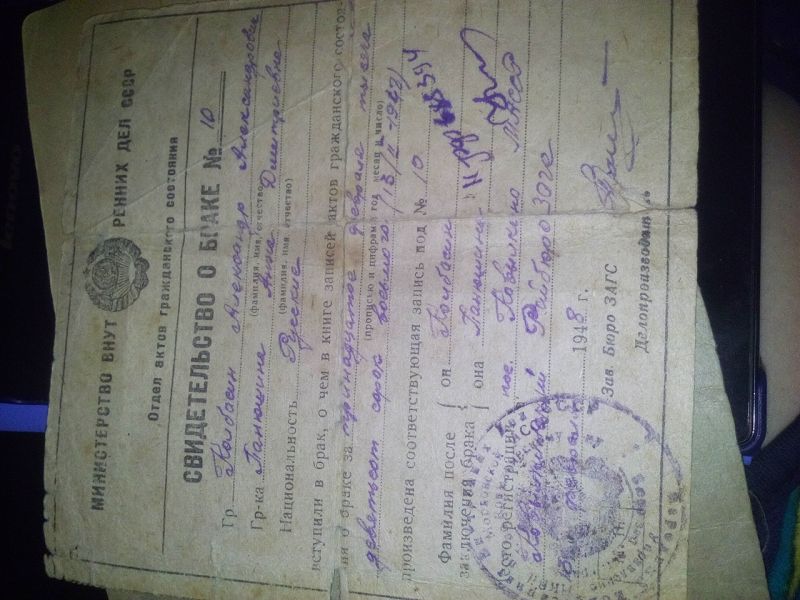 МИНИСТЕРСТВО ВНУТРЕННИХ ДЕЛ СССР
Отдел актов гражданского состояния
СВИДЕТЕЛЬСТВО О БРАКЕ № 10
Гр Колбасин Александр Александрович
(фамилия, имя, отчество)
Гр-ка Ганюшина Анна Дмитриевна
(фамилия, имя, отчество)
Национальность Русские
вступили в брак, о чем в книге записей актов гражданского состоя-
ния о браке за тринадцатое февраля тысяча
(прописью и цифрами: год месяц и число)
девятьсот сорок восьмого
произведена соответствующая запись под № 10
Фамилия после заключения брака
он Колбасин
она Ганюшина
Место регистрации пос. Павшино
Райбюро Загс
февраля 1948 г.
Зав. Бюро ЗАГС
Делопроизводитель
lenovo